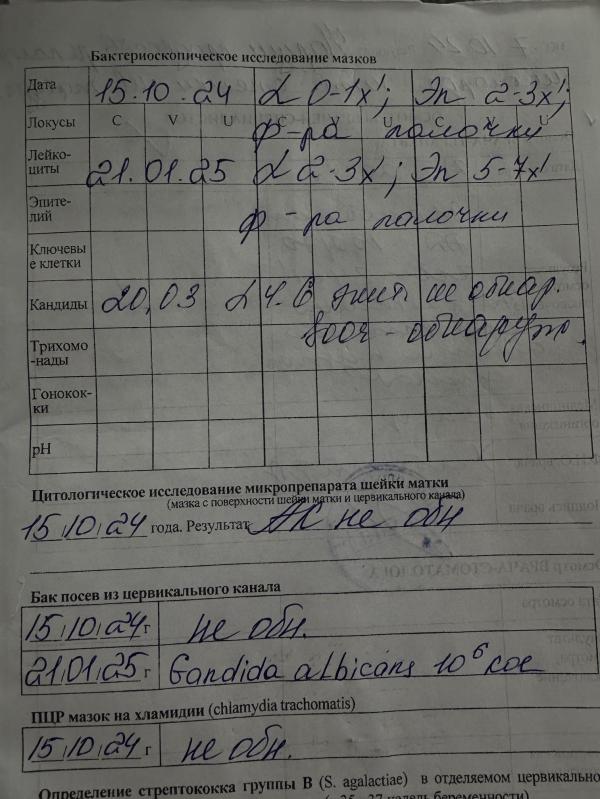 Бактериоскопическое исследование мазков
Дата 15.10.24 L 0-1х'; Эп 2-3х';
Локусы C V U C V U C V U
ф-ра палочки
Лейко-
циты 21.01.25 L 2-3х'; Эп 5-7х'
Эпите-
лий ф-ра палочки
Ключевы
е клетки
Кандиды 20,03 не обнар.
Трихомо
-нады - обнаруж.
Гонокок-
ки
pH
Цитологическое исследование микропрепарата шейки матки
(мазка с поверхности шейки матки и цервикального канала)
15.10.24 года. Результат АК не обн
Бак посев из цервикального канала
15.10.24 г не обн.
21.01.25 г Candida albicans 10⁶ кое
ПЦР мазок на хламидии (chlamydia trachomatis)
15.10.24 г не обн.
Определение стрептококка группы В (S. agalactiae) в отделяемом цервикально